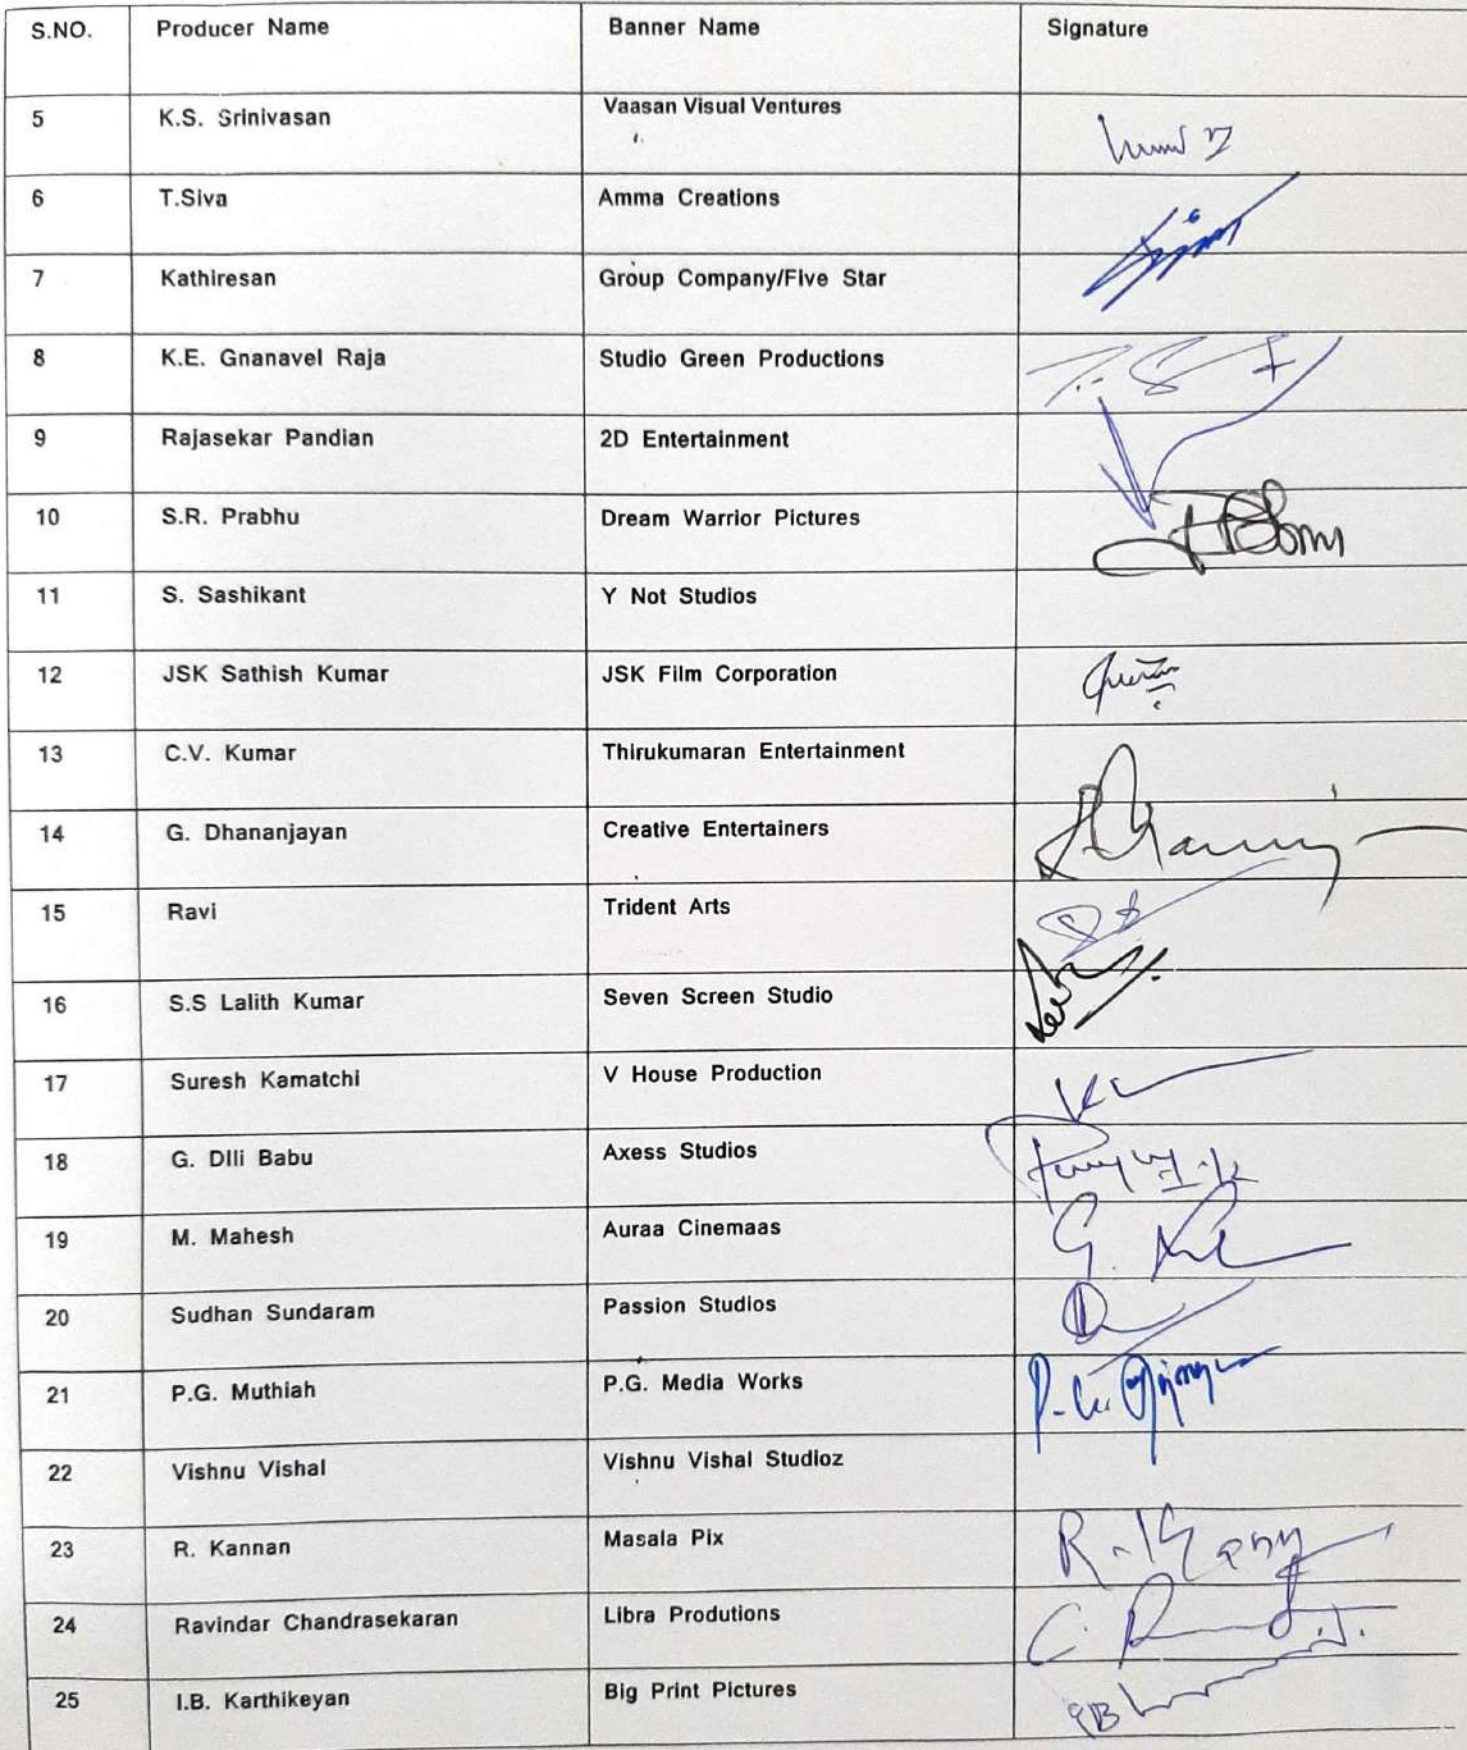 S.NO. Producer Name Banner Name Signature
5 K.S. Srinivasan Vaasan Visual Ventures
6 T.Siva Amma Creations
7 Kathiresan Group Company/Five Star
8 K.E. Gnanavel Raja Studio Green Productions
9 Rajasekar Pandian 2D Entertainment
10 S.R. Prabhu Dream Warrior Pictures
11 S. Sashikant Y Not Studios
12 JSK Sathish Kumar JSK Film Corporation
13 C.V. Kumar Thirukumaran Entertainment
14 G. Dhananjayan Creative Entertainers
15 Ravi Trident Arts
16 S.S Lalith Kumar Seven Screen Studio
17 Suresh Kamatchi V House Production
18 G. DIli Babu Axess Studios
19 M. Mahesh Auraa Cinemaas
20 Sudhan Sundaram Passion Studios
21 P.G. Muthiah P.G. Media Works
22 Vishnu Vishal Vishnu Vishal Studioz
23 R. Kannan Masala Pix
24 Ravindar Chandrasekaran Libra Produtions
25 I.B. Karthikeyan Big Print Pictures